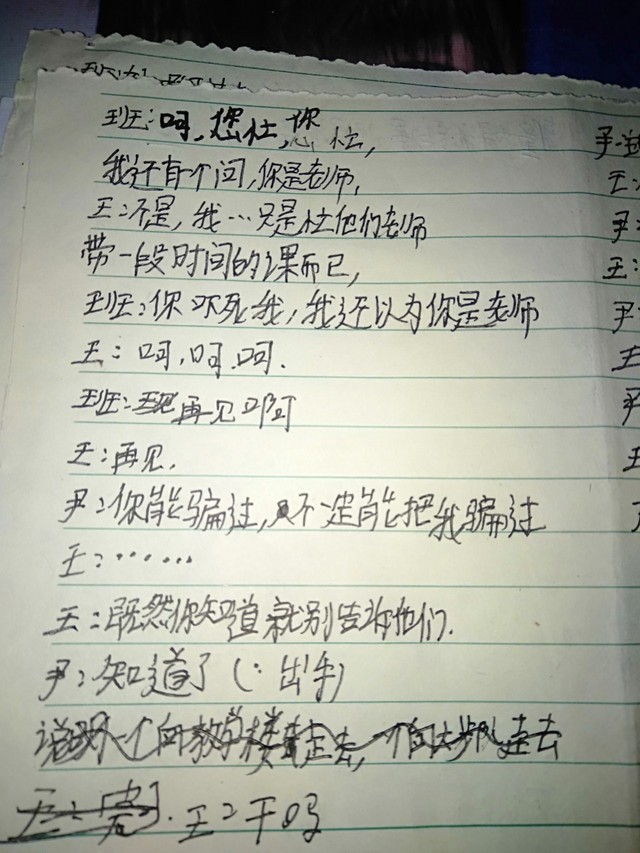 班：呵，您忙，您忙，
我还有个问，你是老师，
王：不是，我…只是在他们老师
带一段时间的课而已，
班：你吓死我，我还以为你是老师
王：呵，呵，呵.
班：再见啊
王：再见.
尹：你能骗过，不一定能把我骗过
王：……
王：既然你知道就别告诉他们.
尹：知道了（：出手）
一个向教学楼走去，一个向走去
王：王：干吗
尹：
王：
尹：
王：
尹
王
尹
王